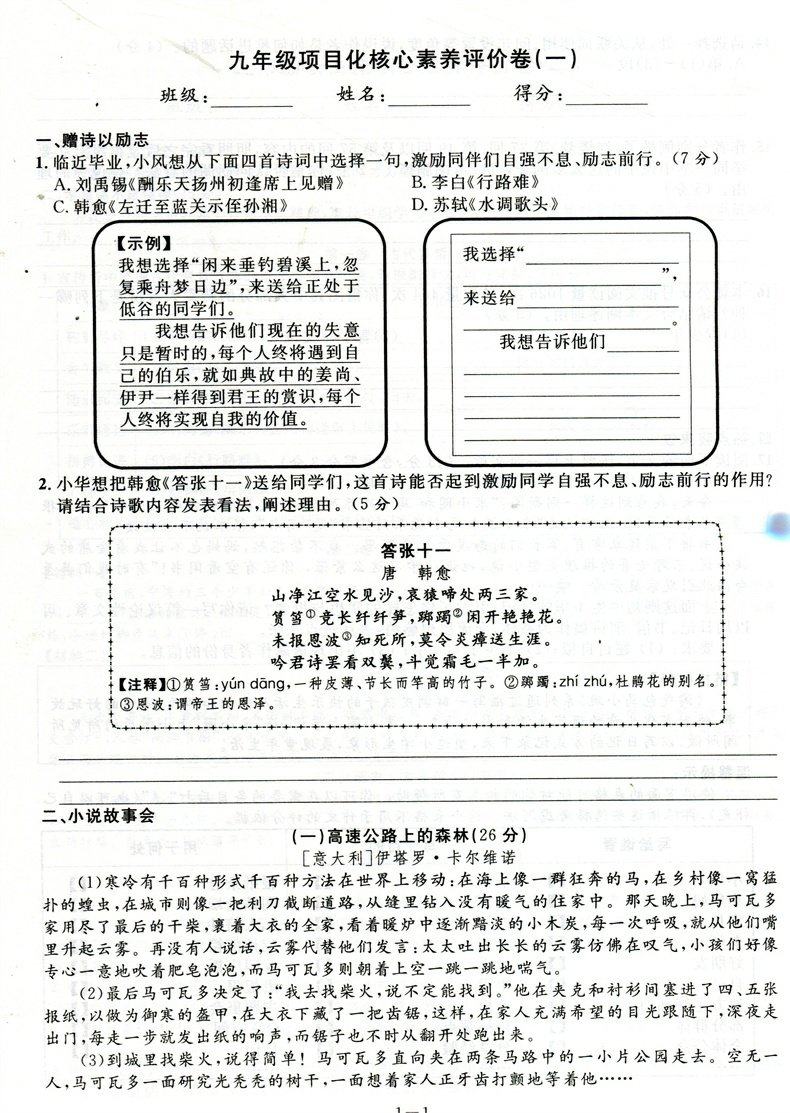 九年级项目化核心素养评价卷(一)
班级:________ 姓名:________ 得分:________
一、赠诗以励志
1.临近毕业,小风想从下面四首诗词中选择一句,激励同伴们自强不息、励志前行。(7分)
A.刘禹锡《酬乐天扬州初逢席上见赠》 B.李白《行路难》
C.韩愈《左迁至蓝关示侄孙湘》 D.苏轼《水调歌头》
【示例】
我想选择“闲来垂钓碧溪上,忽
复乘舟梦日边”,来送给正处于
低谷的同学们。
我想告诉他们现在的失意
只是暂时的,每个人终将遇到自
己的伯乐,就如典故中的姜尚、
伊尹一样得到君王的赏识,每个
人终将实现自我的价值。
我选择“________
”,
来送给
________。
我想告诉他们________
2.小华想把韩愈《答张十一》送给同学们,这首诗能否起到激励同学自强不息、励志前行的作用?
请结合诗歌内容发表看法,阐述理由。(5分)
答张十一
唐 韩愈
山净江空水见沙,哀猿啼处两三家。
筼筜①竞长纤纤笋,踯躅②闲开艳艳花。
未报恩波③知死所,莫令炎瘴送生涯。
吟君诗罢看双鬓,斗觉霜毛一半加。
【注释】①筼筜:yún dāng,一种皮薄、节长而竿高的竹子。②踯躅:zhí zhú,杜鹃花的别名。
③恩波:谓帝王的恩泽。
二、小说故事会
(一)高速公路上的森林(26分)
[意大利]伊塔罗·卡尔维诺
(1)寒冷有千百种形式千百种方法在世界上移动:在海上像一群狂奔的马,在乡村像一窝猛
扑的蝗虫,在城市则像一把利刀截断道路,从缝里钻入没有暖气的住家中。那天晚上,马可瓦多
家用尽了最后的干柴,裹着大衣的全家,看着暖炉中逐渐黯淡的小木炭,每一次呼吸,就从他们嘴
里升起云雾。再没有人说话,云雾代替他们发言:太太吐出长长的云雾仿佛在叹气,小孩们好像
专心一意地吹着肥皂泡泡,而马可瓦多则朝着上空一跳一跳地喘气。
(2)最后马可瓦多决定了:“我去找柴火,说不定能找到。”他在夹克和衬衫间塞进了四、五张
报纸,以做为御寒的盔甲,在大衣下藏了一把齿锯,这样,在家人充满希望的目光跟随下,深夜走
出门,每走一步就发出纸的响声,而锯子也不时从翻开处跑出来。
(3)到城里找柴火,说得简单!马可瓦多直向夹在两条马路中的一小片公园走去。空无一
人,马可瓦多一面研究光秃秃的树干,一面想着家人正牙齿打颤地等着他……
1—1